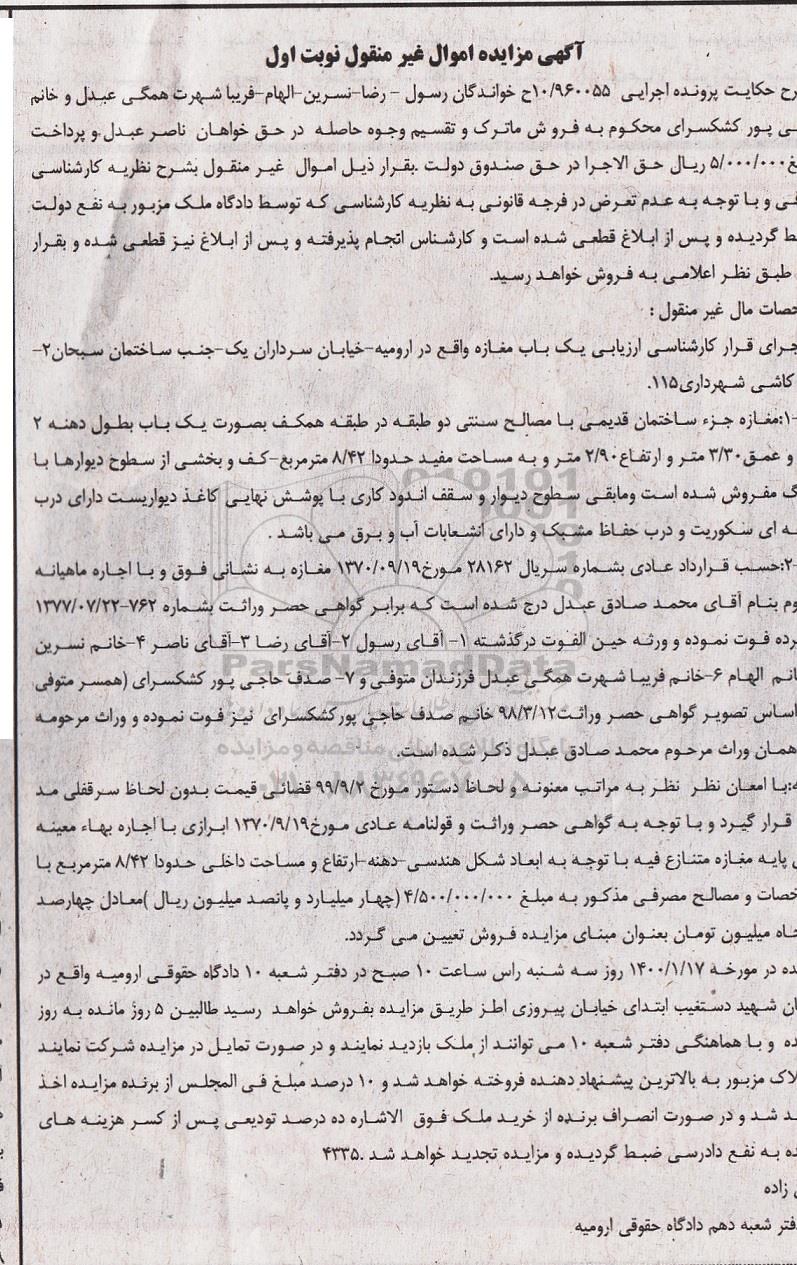 آگهی مزایده اموال غیر منقول نوبت اول
رح حکایت پرونده اجرایی ۱۰/۹۶۰۰۵۵ح خواندگان رسول - رضا-نسرین-الهام-فریبا شهرت همگی عبدل و خانم
ی پور کشکسرای محکوم به فروش ماترک و تقسیم وجوه حاصله در حق خواهان ناصر عبدل.و پرداخت
غ۵/۰۰۰/۰۰۰ ریال حق الاجرا در حق صندوق دولت .بقرار ذیل اموال غیر منقول بشرح نظریه کارشناسی
فی و با توجه به عدم تعرض در فرجه قانونی به نظریه کارشناسی که توسط دادگاه ملک مزبور به نفع دولت
ط گردیده و پس از ابلاغ قطعی شده است و کارشناس انجام پذیرفته و پس از ابلاغ نیز قطعی شده و بقرار
طبق نظر اعلامی به فروش خواهد رسید.
حصات مال غیر منقول :
جرای قرار کارشناسی ارزیابی یک باب مغازه واقع در ارومیه-خیابان سرداران یک-جنب ساختمان سبحان۲-
کاشی شهرداری۱۱۵.
-۱:مغازه جزء ساختمان قدیمی با مصالح سنتی دو طبقه در طبقه همکف بصورت یک باب بطول دهنه ۲
و عمق۳/۳۰ متر و ارتفاع۲/۹۰ متر و به مساحت مفید حدودا ۸/۴۲ مترمربع-کف و بخشی از سطوح دیوارها با
گ مفروش شده است ومابقی سطوح دیوار و سقف اندود کاری با پوشش نهایی کاغذ دیواریست دارای درب
ه ای سکوریت و درب حفاظ مشبک و دارای انشعابات آب و برق می باشد .
-۲:حسب قرارداد عادی بشماره سریال ۲۸۱۶۲ مورخ۱۳۷۰/۰۹/۱۹ مغازه به نشانی فوق و با اجاره ماهیانه
وم بنام آقای محمد صادق عبدل درج شده است که برابر گواهی حصر وراثت بشماره ۷۶۲-۱۳۷۷/۰۷/۲۲
برده فوت نموده و ورثه حین الفوت درگذشته ۱- آقای رسول ۲-آقای رضا ۳-آقای ناصر ۴-خانم نسرین
انم الهام ۶-خانم فریبا شهرت همگی عبدل فرزندان متوفی و ۷- صدف حاجی پور کشکسرای (همسر متوفی
اساس تصویر گواهی حصر وراثت۹۸/۳/۱۲ خانم صدف حاجی پورکشکسرای نیز فوت نموده و وراث مرحومه
همان وراث مرحوم محمد صادق عبدل ذکر شده است.
ه:با امعان نظر نظر به مراتب معنونه و لحاظ دستور مورخ ۹۹/۹/۲ قضائی قیمت بدون لحاظ سرقفلی مد
قرار گیرد و با توجه به گواهی حصر وراثت و قولنامه عادی مورخ۱۳۷۰/۹/۱۹ ابرازی با اجاره بهاء معینه
ی پایه مغازه متنازع فیه با توجه به ابعاد شکل هندسی-دهنه-ارتفاع و مساحت داخلی حدودا ۸/۴۲ مترمربع با
خصات و مصالح مصرفی مذکور به مبلغ ۴/۵۰۰/۰۰۰/۰۰۰ (چهار میلیارد و پانصد میلیون ریال )معادل چهارصد
جاه میلیون تومان بعنوان مبنای مزایده فروش تعیین می گردد.
ده در مورخه ۱۴۰۰/۱/۱۷ روز سه شنبه راس ساعت ۱۰ صبح در دفتر شعبه ۱۰ دادگاه حقوقی ارومیه واقع در
ان شهید دستغیب ابتدای خیابان پیروزی اطز طریق مزایده بفروش خواهد رسید طالبین ۵ روز مانده به روز
ده و با هماهنگی دفتر شعبه ۱۰ می توانند از ملک بازدید نمایند و در صورت تمایل در مزایده شرکت نمایند
لاک مزبور به بالاترین پیشنهاد دهنده فروخته خواهد شد و ۱۰ درصد مبلغ فی المجلس از برنده مزایده اخذ
د شد و در صورت انصراف برنده از خرید ملک فوق الاشاره ده درصد تودیعی پس از کسر هزینه های
ده به نفع دادرسی ضبط گردیده و مزایده تجدید خواهد شد .۴۳۳۵
ی زاده
فتر شعبه دهم دادگاه حقوقی ارومیه
ParsNamadData